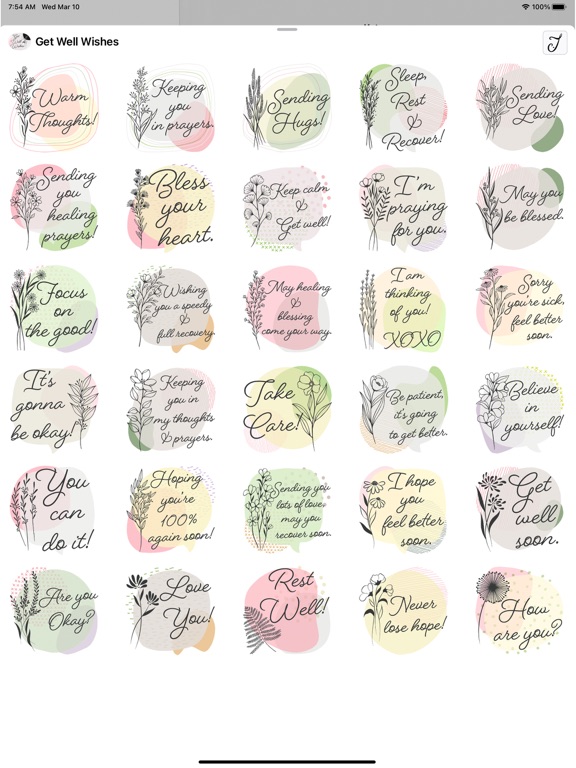 7:54 AM Wed Mar 10
100%
Get Well Wishes
Warm
Thoughts!
Keeping
you
in prayers.
Sending
Hugs!
Sleep,
Rest
&
Recover!
Sending
Love!
Sending
you
healing
prayers!
Bless
your
heart.
Keep calm
&
Get well!
I'm
praying
for you.
May you
be blessed.
Focus
on
the good!
Wishing
you a speedy
&
full recovery.
May healing
&
blessing
come your way.
I am
thinking
of you!
XOXO
Sorry
you're sick,
feel better
soon.
It's
gonna
be okay!
Keeping
you in
my thoughts
& prayers.
Take
Care!
Be patient,
it's going
to get better.
Believe
in
yourself!
You
can
do it!
Hoping
you're
100%
again soon!
Sending you
lots of love,
may you
recover soon.
I hope
you
feel better
soon.
Get
well
soon.
Are you
Okay?
Love
You!
Rest
Well!
Never
lose hope!
How
are you?